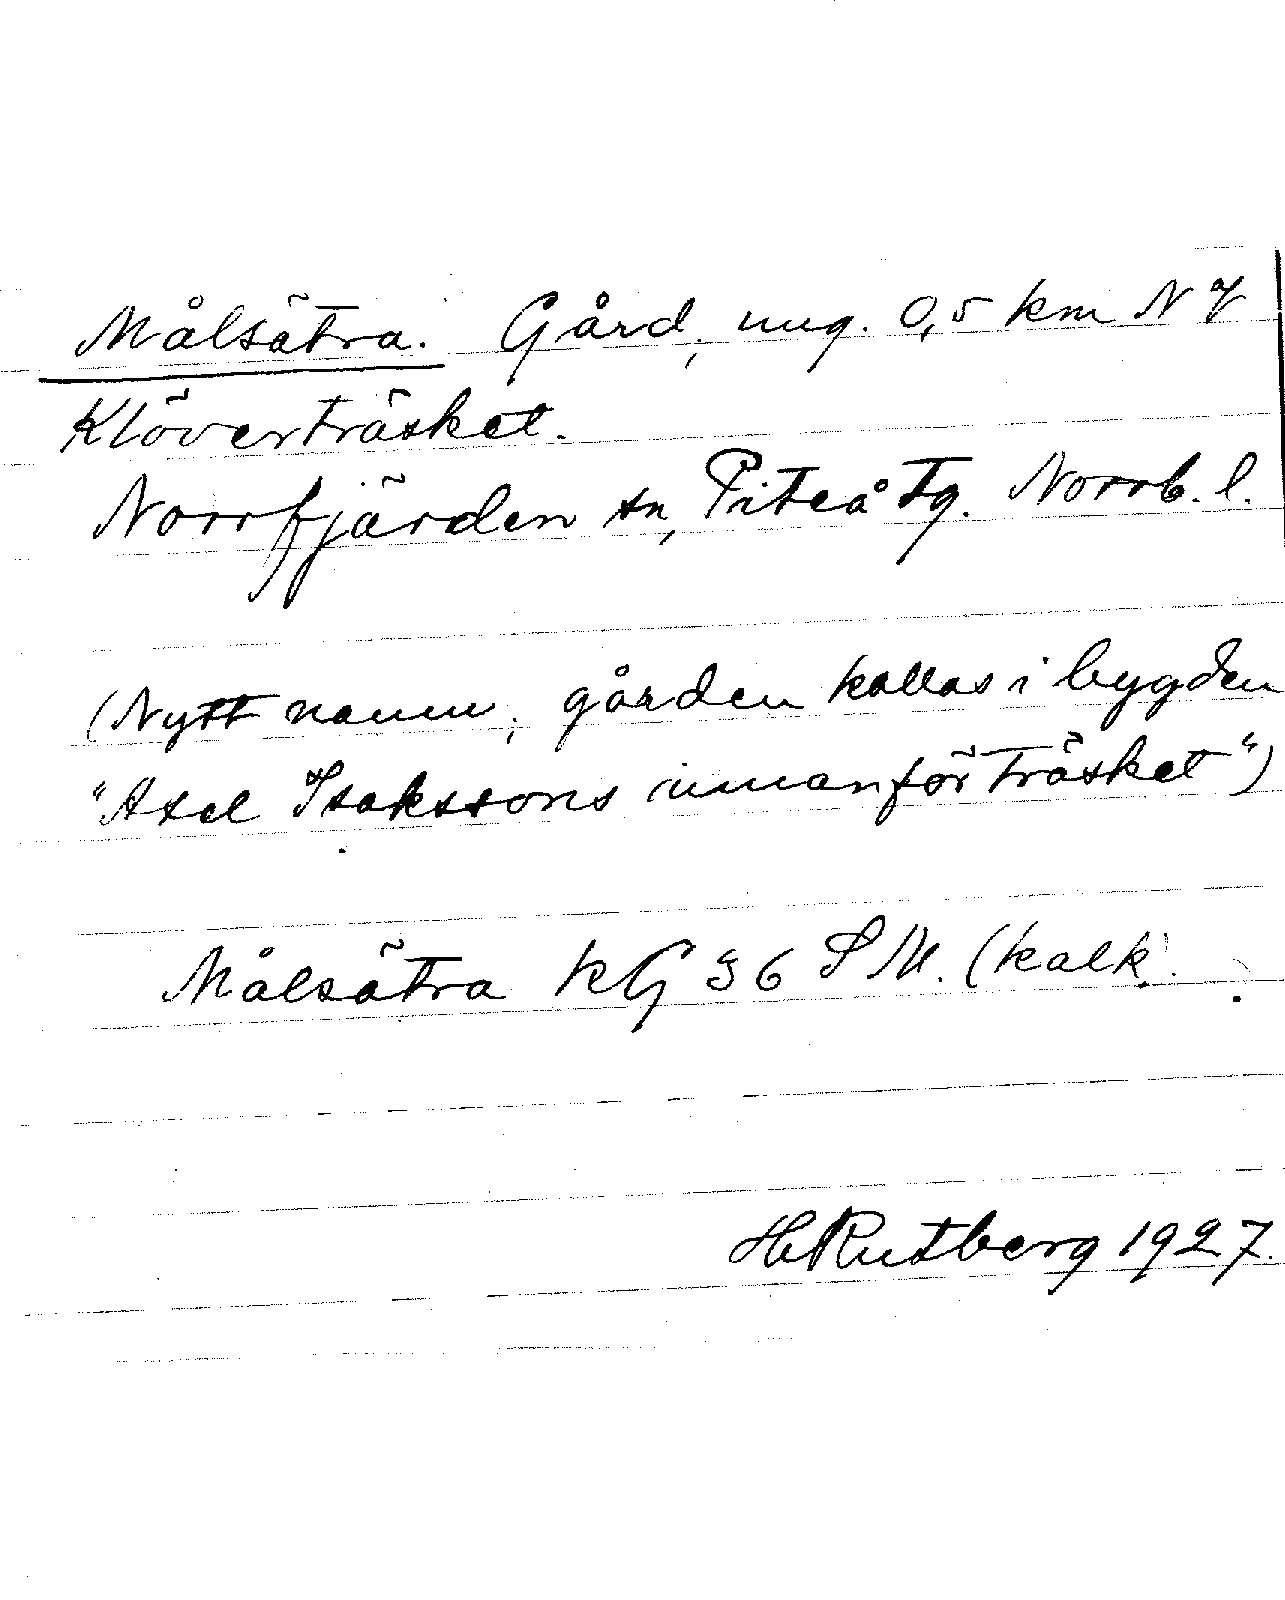 Målsätra. Gård, ung. 0,5 km N
Klöverträsket.
Norrfjärden sn, Piteå tg. Norrb. l.
(Nytt namn, gården kallas i bygden
"Axel Isakssons innanför träsket")
Målsätra KG 36 SM. (kalk.
H Rutberg 1927.